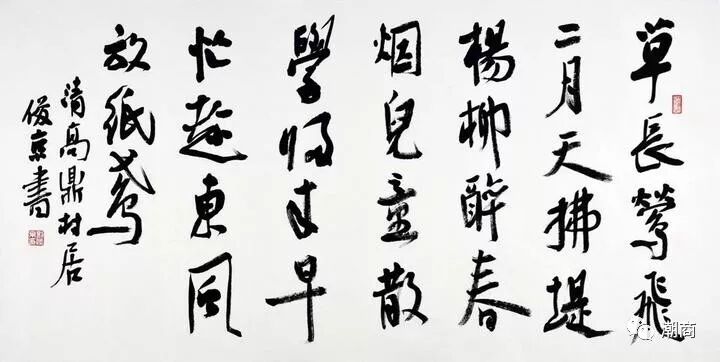 草長鶯飛
二月天拂堤
楊柳醉春
烟兒童散
學歸来早
忙趁東風
放紙鳶
清高鼎村居
俊京書
潮商